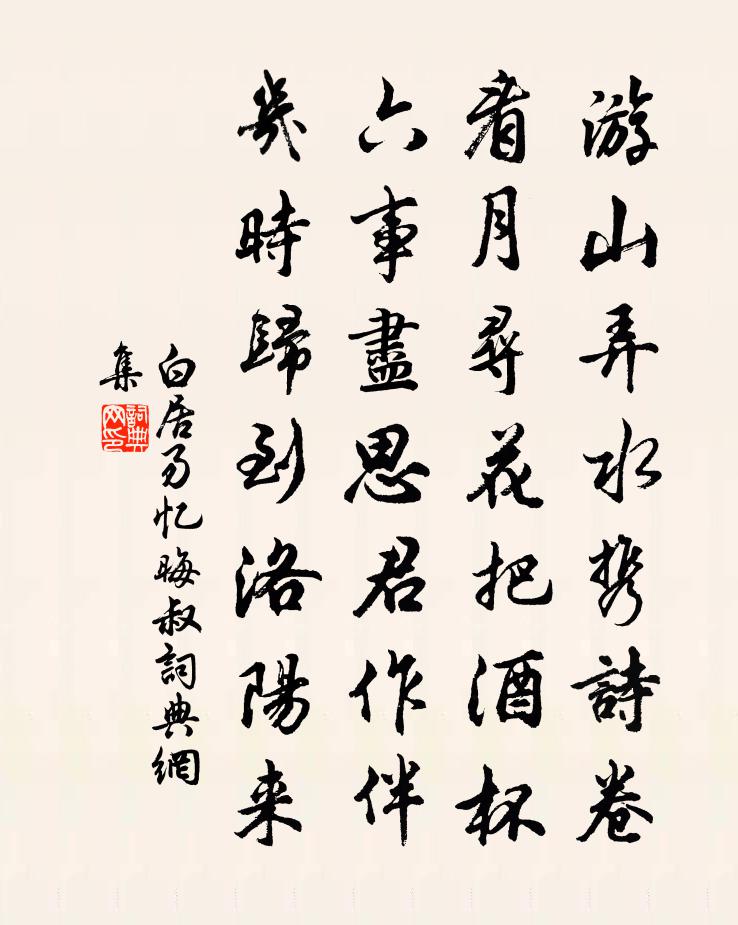 游山弄水携詩卷
看月尋花把酒杯
六事盡思君作伴
幾時歸到洛陽来
白居易忆晦叔詞典網
集
詞典
网印